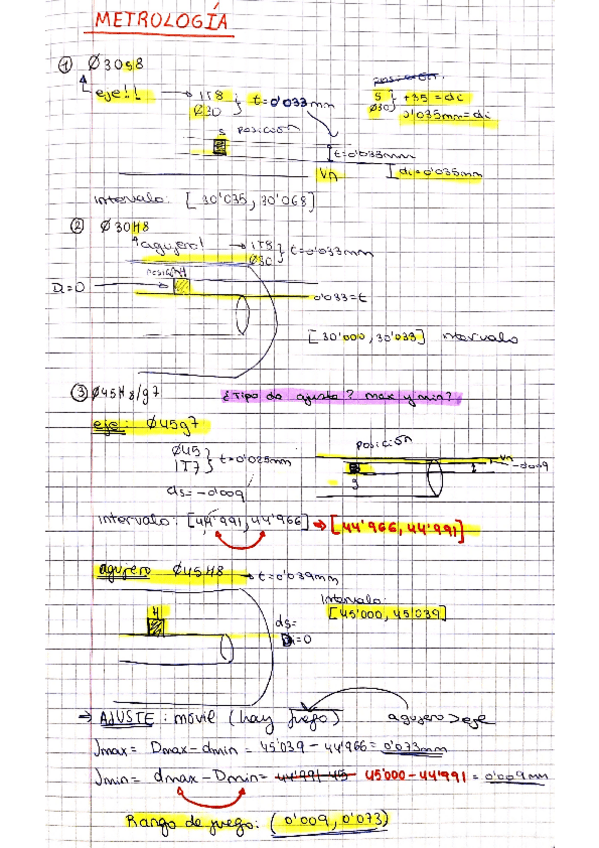 METROLOGÍA
① Ø30s8
eje!! → IT8
Ø30 } t=0'033mm
posición
s } +35 = di
Ø30 0'035mm=di
s posición
t=0'033mm
Vn di=0'035mm
intervalo: [30'035, 30'068]
② Ø30H8
agujero! → IT8
Ø30 } t=0'033mm
posición H
Di=0
0'033=t
[30'000, 30'033] intervalo
③ Ø45H8/g7 ¿Tipo de ajuste? max y min?
eje: Ø45g7
Ø45
IT7 } t=0'025mm
posición
Vn
-0'009
g
ds=-0'009
intervalo: [44'991, 44'966] → [44'966, 44'991]
agujero Ø45H8 → t=0'039mm
Intervalo:
[45'000, 45'039]
H
ds=
Di=0
→ AJUSTE: móvil (hay juego) agujero>eje
Jmax= Dmax-dmin = 45'039-44'966= 0'073mm
Jmin= dmax-Dmin= 44'991-45 45'000-44'991 = 0'009mm
Rango de juego: (0'009, 0'073)